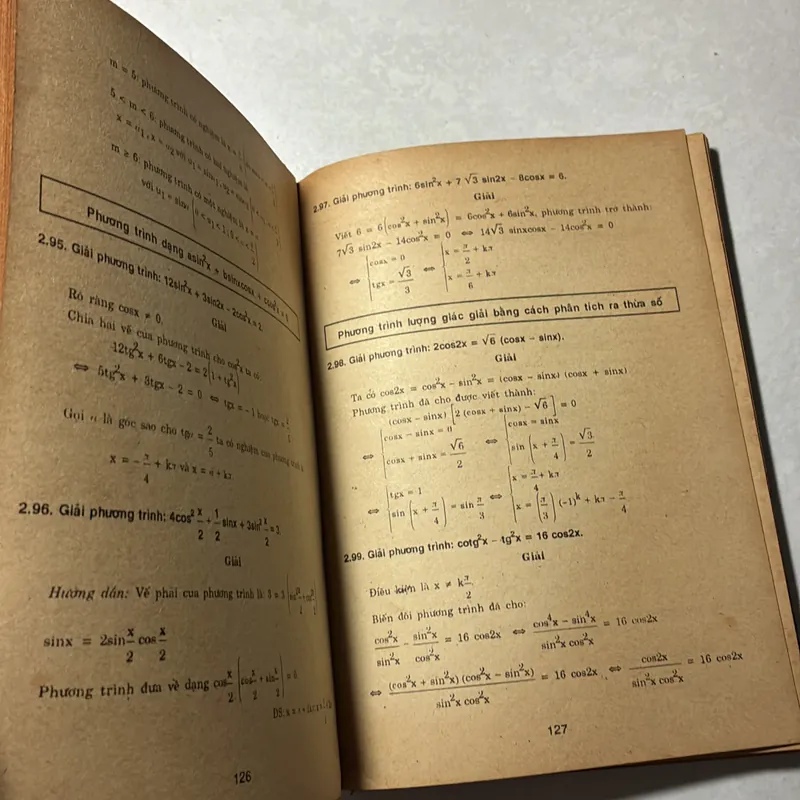 m = 5: phương trình có nghiệm là x =
5 < m < 6: phương trình có hai nghiệm là
m ≥ 6: phương trình có một nghiệm là x =
Phương trình dạng asin²x + bsinxcosx + ccos²x = 0
2.95. Giải phương trình: 12sin²x + 3sin2x − 2cos²x = 2.
Giải
Rõ ràng cosx ≠ 0.
Chia hai vế của phương trình cho cos²x ta có:
12tg²x + 6tgx − 2 = 2(1 + tg²x)
⇔ 5tg²x + 3tgx − 2 = 0 ⇔ tgx = − 1 hoặc tgx = 2/5
Gọi α là góc sao cho tgα = 2/5 ta có nghiệm của phương trình là
x = −π/4 + kπ và x = α + kπ
2.96. Giải phương trình: 4cos² x/2 + 1/2 sinx + 3sin² x/2 = 3.
Giải
Hướng dẫn: Vế phải của phương trình là 3 = 3(sin² x/2 + cos² x/2)
sinx = 2sin x/2 cos x/2
Phương trình đưa về dạng cos x/2 (cos x/2 + sin x/2) = 0
126
2.97. Giải phương trình: 6sin²x + 7√3 sin2x − 8cosx = 6.
Giải
Viết 6 = 6(cos²x + sin²x) = 6cos²x + 6sin²x, phương trình trở thành:
7√3 sin2x − 14cos²x = 0 ⇔ 14√3 sinxcosx − 14cos²x = 0
⇔ [cosx = 0 ; tgx = √3/3 ⇔ [x = π/2 + kπ ; x = π/6 + kπ
Phương trình lượng giác giải bằng cách phân tích ra thừa số
2.96. Giải phương trình: 2cos2x = √6 (cosx − sinx).
Giải
Ta có cos2x = cos²x − sin²x = (cosx − sinx) (cosx + sinx)
Phương trình đã cho được viết thành:
(cosx − sinx) [2 (cosx + sinx) − √6] = 0
⇔ [cosx − sinx = 0 ; cosx + sinx = √6/2 ⇔ [cosx = sinx ; sin (x + π/4) = √3/2
⇔ [tgx = 1 ; sin (x + π/4) = sin π/3 ⇔ [x = π/4 + kπ ; x = (π/3) (-1)ᵏ + kπ − π/4
2.99. Giải phương trình: cotg²x − tg²x = 16 cos2x.
Giải
Điều kiện là x ≠ kπ/2.
Biến đổi phương trình đã cho:
cos²x/sin²x − sin²x/cos²x = 16 cos2x ⇔ (cos⁴x − sin⁴x)/(sin²x cos²x) = 16 cos2x
⇔ (cos²x + sin²x) (cos²x − sin²x)/(sin²x cos²x) = 16 cos2x ⇔ cos2x/(sin²x cos²x) = 16 cos2x
127